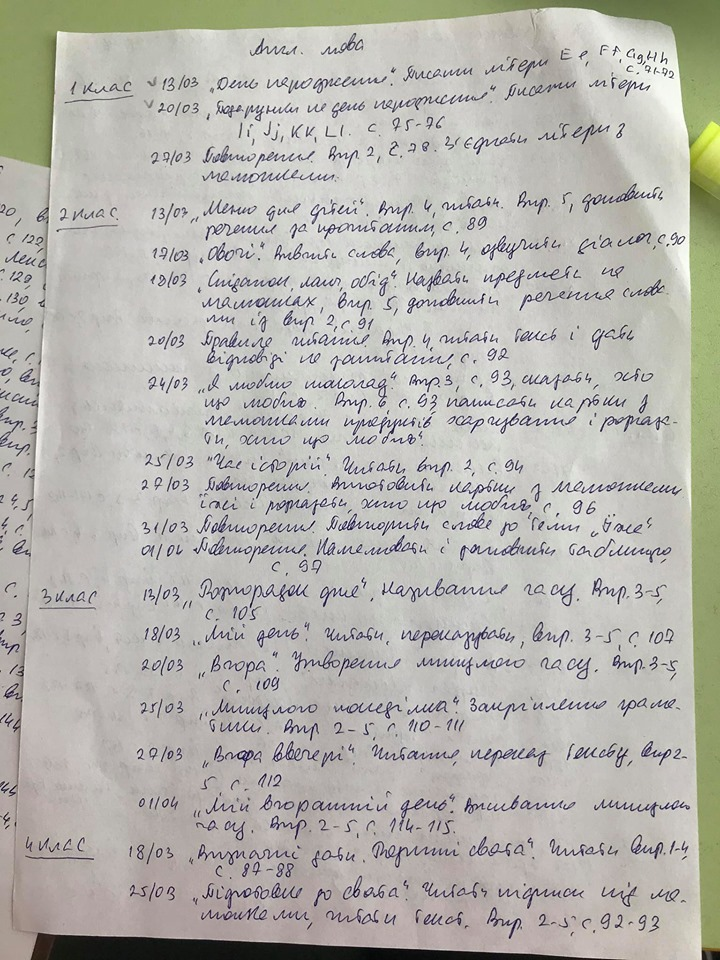 Англ. мова
1 клас 13/03 „День народження". Писати літери Ee, Ff, Gg, Hh
с. 71-72
20/03 „Подарунки на день народження". Писати літери
Ii, Jj, Kk, Ll. с. 75-76
27/03 Повторення. Впр. 2, с. 78. З'єднати літери з
малюнками.
2 клас. 13/03 „Меню для дітей". Впр. 4, читати. Впр. 5, доповнити
речення за прочитаним, с. 89
17/03 „Овочі". Вивчити слова, впр. 4, озвучити діалог, с. 90
18/03 „Сніданок, ланч, обід". Назвати предмети на
малюнках, впр. 5, доповнити речення слова-
ми із впр 2, с. 91
20/03 Правила читання. Впр. 4, читати текст і дати
відповіді на запитання, с. 92
24/03 „Я люблю шоколад". Впр 3, с. 93, сказати, хто
що любить. Впр. 6, с. 93, написати картки з
малюнками продуктів харчування і розказа-
ти, хто що любить.
25/03 "Час історій". Читати впр. 2, с. 94
27/03 Повторення. Виготовити картки з малюнками
їжі і розказати, хто що любить, с. 96
31/03 Повторення. Повторити слова до теми „Їжа"
01/04 Повторення. Намалювати і заповнити таблицю,
с. 97
3 клас 13/03 „Розпорядок дня". Називання часу. Впр. 3-5,
с. 105
18/03 „Мій день". Читати, переказувати, впр. 3-5, с. 107
20/03 „Вчора". Утворення минулого часу. Впр. 3-5,
с. 109
25/03 „Минулого понеділка". Закріплення грама-
тики. Впр 2-5, с. 110-111
27/03 „Вчора ввечері". Читання, переказ тексту, впр 2-
5, с. 112
01/04 „Мій вчорашній день". Вживання минулого
часу. Впр. 2-5, с. 114-115.
4 клас 18/03 „Визначні дати. Родинні свята". Читати впр. 1-4,
с. 87-88
25/03 „Підготовка до свята". Читати підписи під ма-
люнками, читати текст. Впр. 2-5, с. 92-93